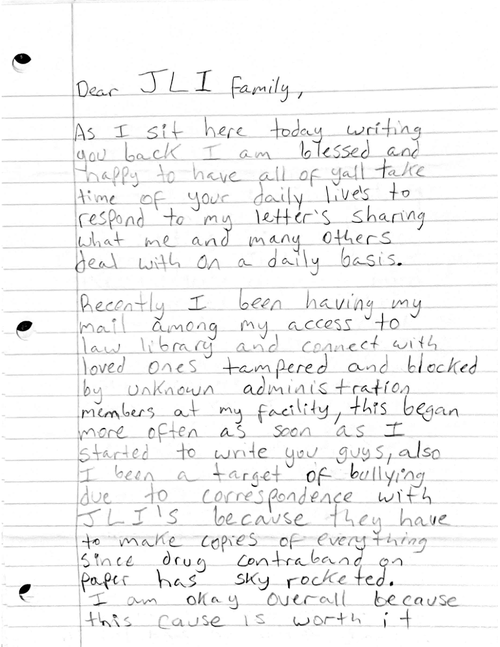 Dear JLI Family,
As I sit here today writing
you back I am blessed and
happy to have all of yall take
time of your daily live's to
respond to my letter's sharing
what me and many others
deal with on a daily basis.
Recently I been having my
mail among my access to
law library and connect with
loved ones tampered and blocked
by unknown administration
members at my facility, this began
more often as soon as I
started to write you guys, also
I been a target of bullying
due to correspondence with
JLI'S because they have
to make copies of everything
since drug contraband on
paper has sky rocketed.
I am okay overall because
this cause is worth it